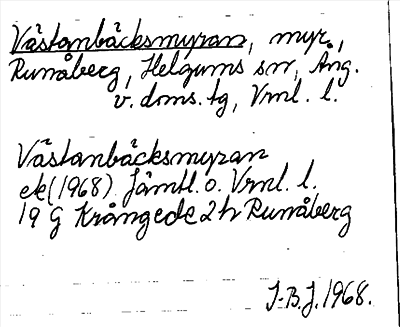 Västanbäcksmyran, myr,
Runåberg, Helgums sn, Ång.
v. doms. tg, Vrnl. l.
Västanbäcksmyran
ek (1968) Jämtl. o. Vrnl. l.
19 G Krångede 2 h Runåberg
J.B.J. 1968.